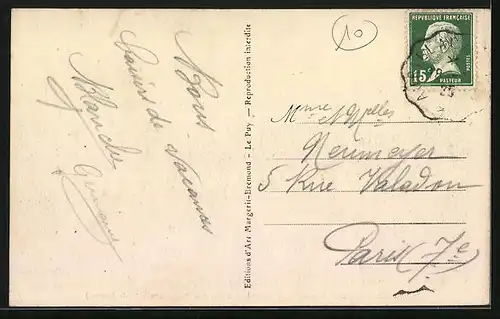 Bons
Baisers de Vacances
Blanche Germaine
Editions d'Art Margerit-Bremond - Le Puy — Reproduction interdite
10
REPUBLIQUE FRANÇAISE
POSTES
15c
PASTEUR
25
Mme & Mlles
Neumeyer
5 Rue Valadon
Paris (7e)